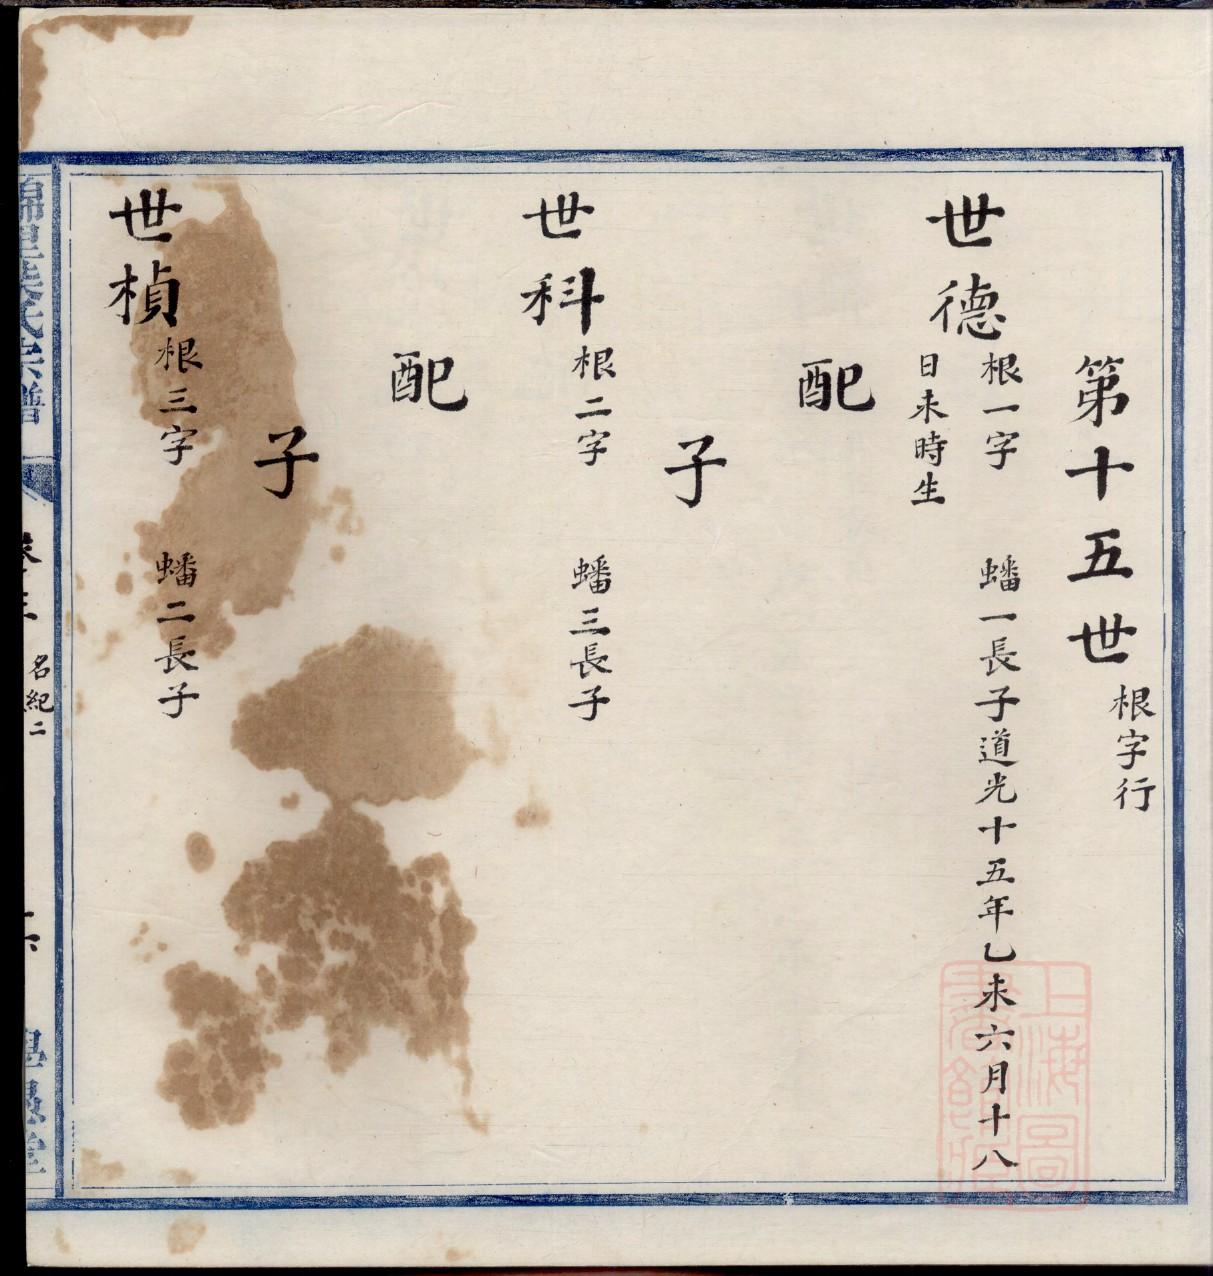 第十五世根字行
世德根一字 蟠一長子道光十五年乙未六月十八
日未時生
配
子
世科根二字 蟠三長子
配
子
世楨根三字 蟠二長子
氏宗譜
名紀二
上海圖